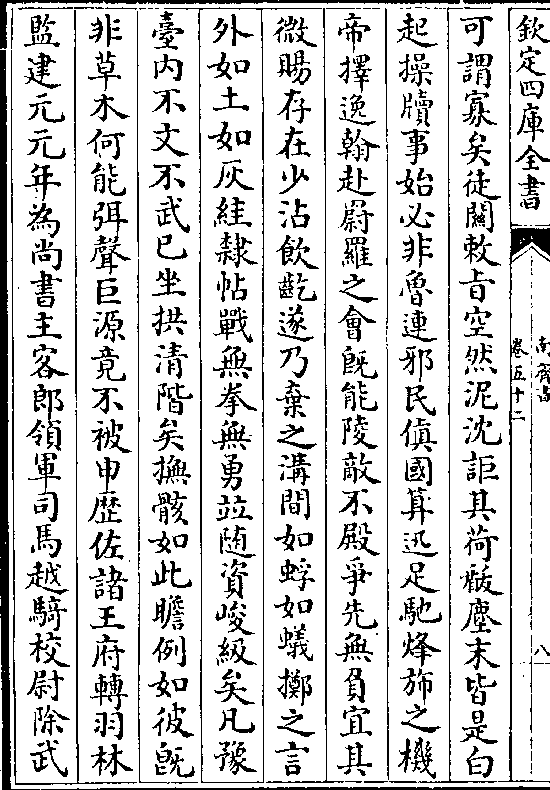 欽定四庫全書
南齊書
卷五十二
八
可謂寡矣徒關敕旨空然泥沈詎其荷䘏塵末皆是白
起操牘事始必非魯連邪民傎國算迅足馳烽斾之機
帝擇逸翰赴罻羅之會既能陵敵不殿爭先無負宜其
微賜存在少沾飲齕遂乃棄之溝間如蜉如蟻擲之言
外如土如灰絓隸帖戰無拳無勇竝随資峻級矣凡豫
臺内不文不武已坐拱清階矣撫骸如此瞻例如彼既
非草木何能弭聲巨源竟不被申歷佐諸王府轉羽林
監建元元年為尚書主客郎領軍司馬越騎校尉除武